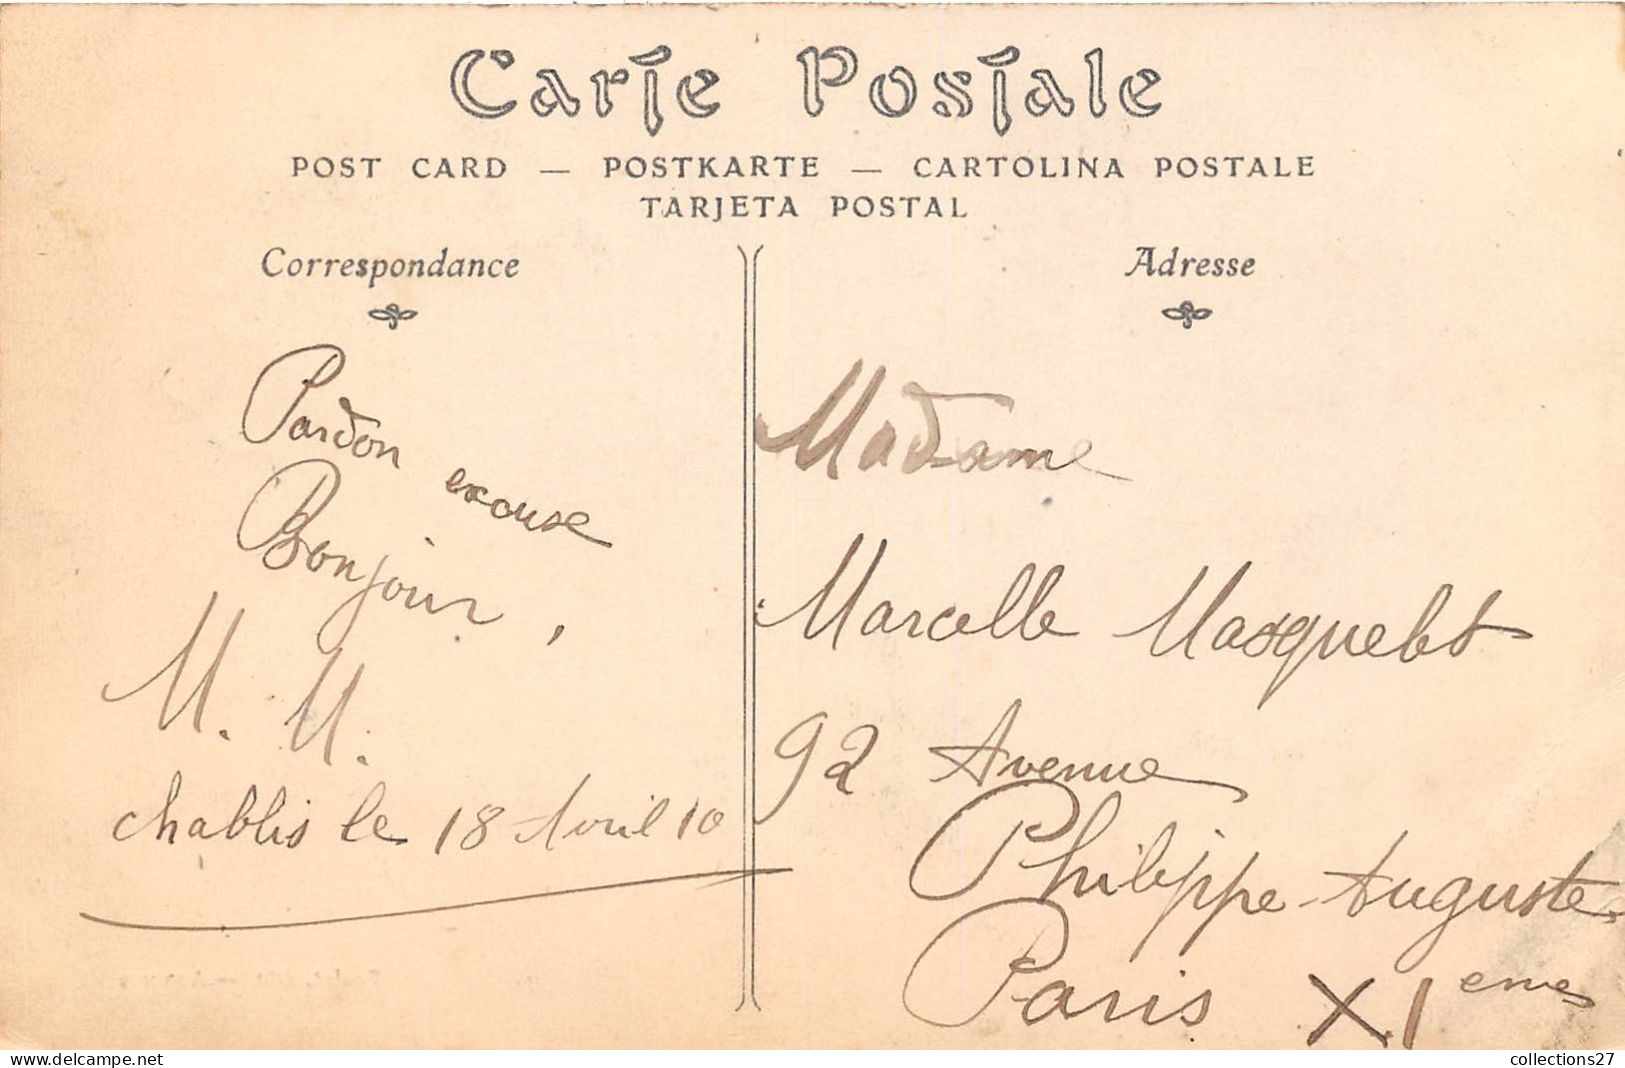 Carte Postale
POST CARD — POSTKARTE — CARTOLINA POSTALE
TARJETA POSTAL
Correspondance
Pardon excuse
Bonjour,
M. M.
Chablis le 18 Avril 10
Adresse
Madame
Marcelle Masquelet
92 Avenue
Philippe-Auguste
Paris XIeme
collections27